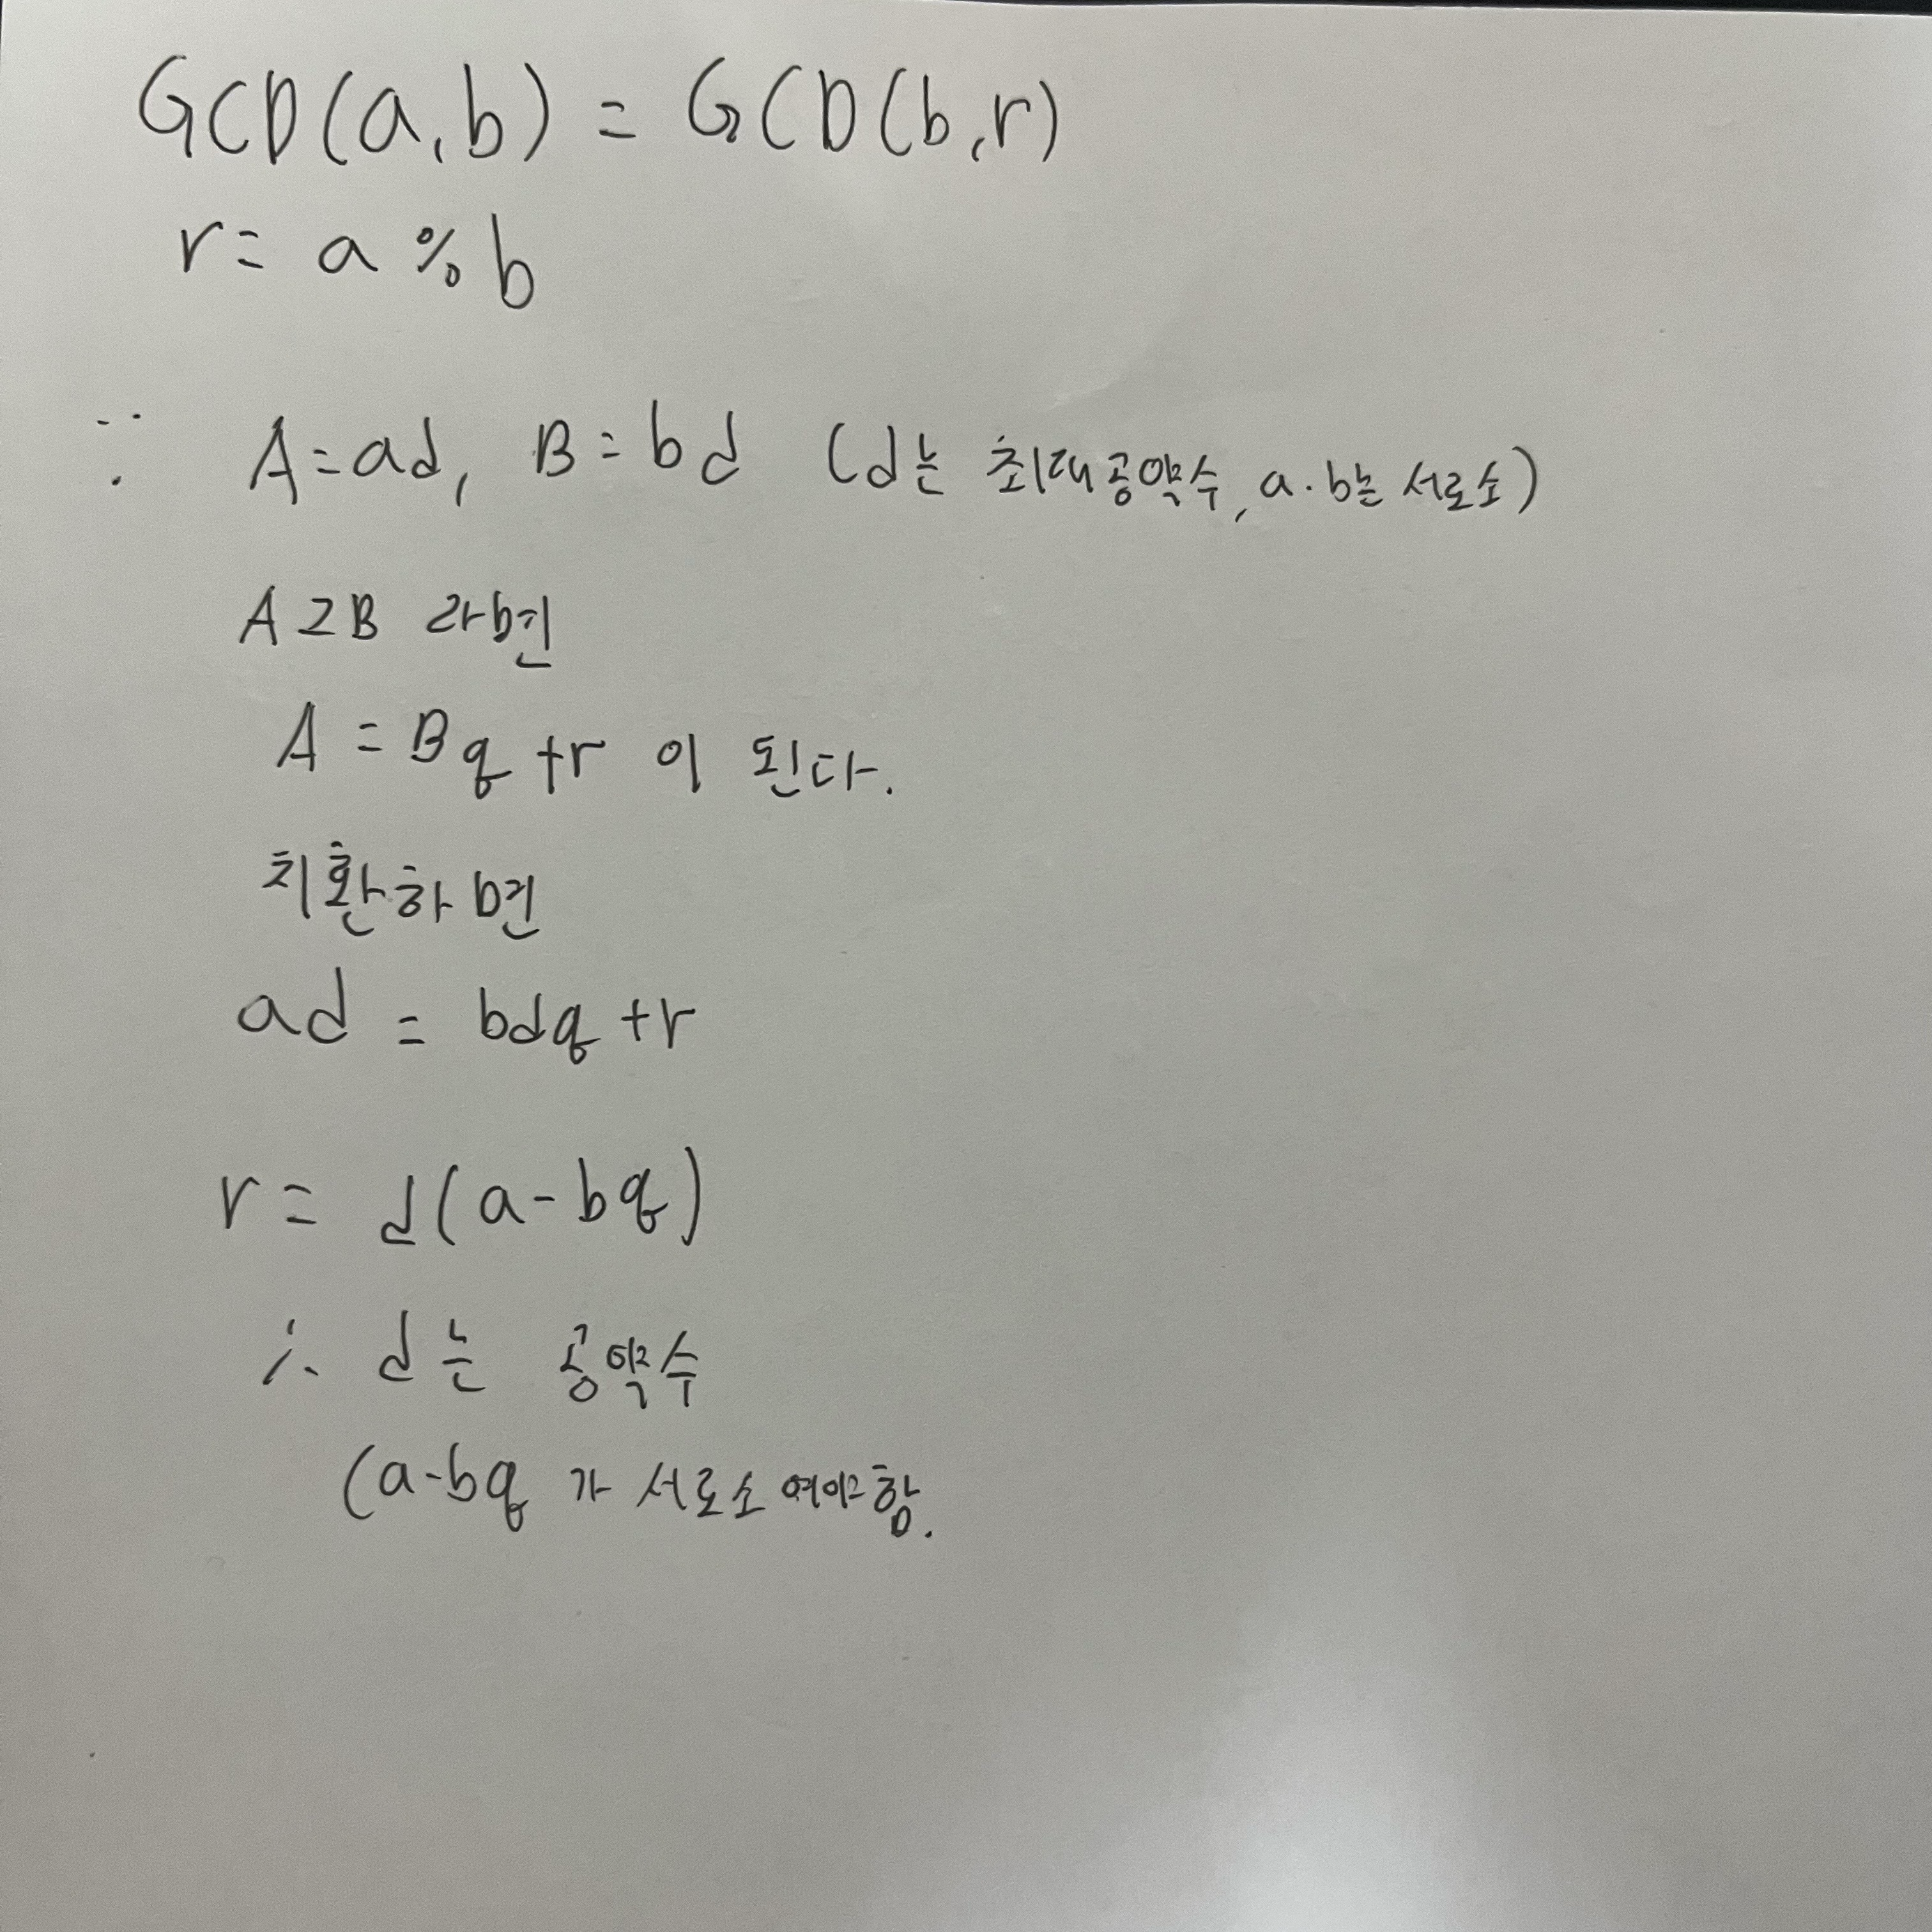 GCD(a,b) = GCD(b,r)
r = a % b
∵ A=ad, B=bd (d는 최대공약수, a·b는 서로소)
A≥B 라면
A = Bq +r 이 된다.
치환하면
ad = bdq +r
r = d(a-bq)
∴ d는 공약수
(a-bq 가 서로소여야함.